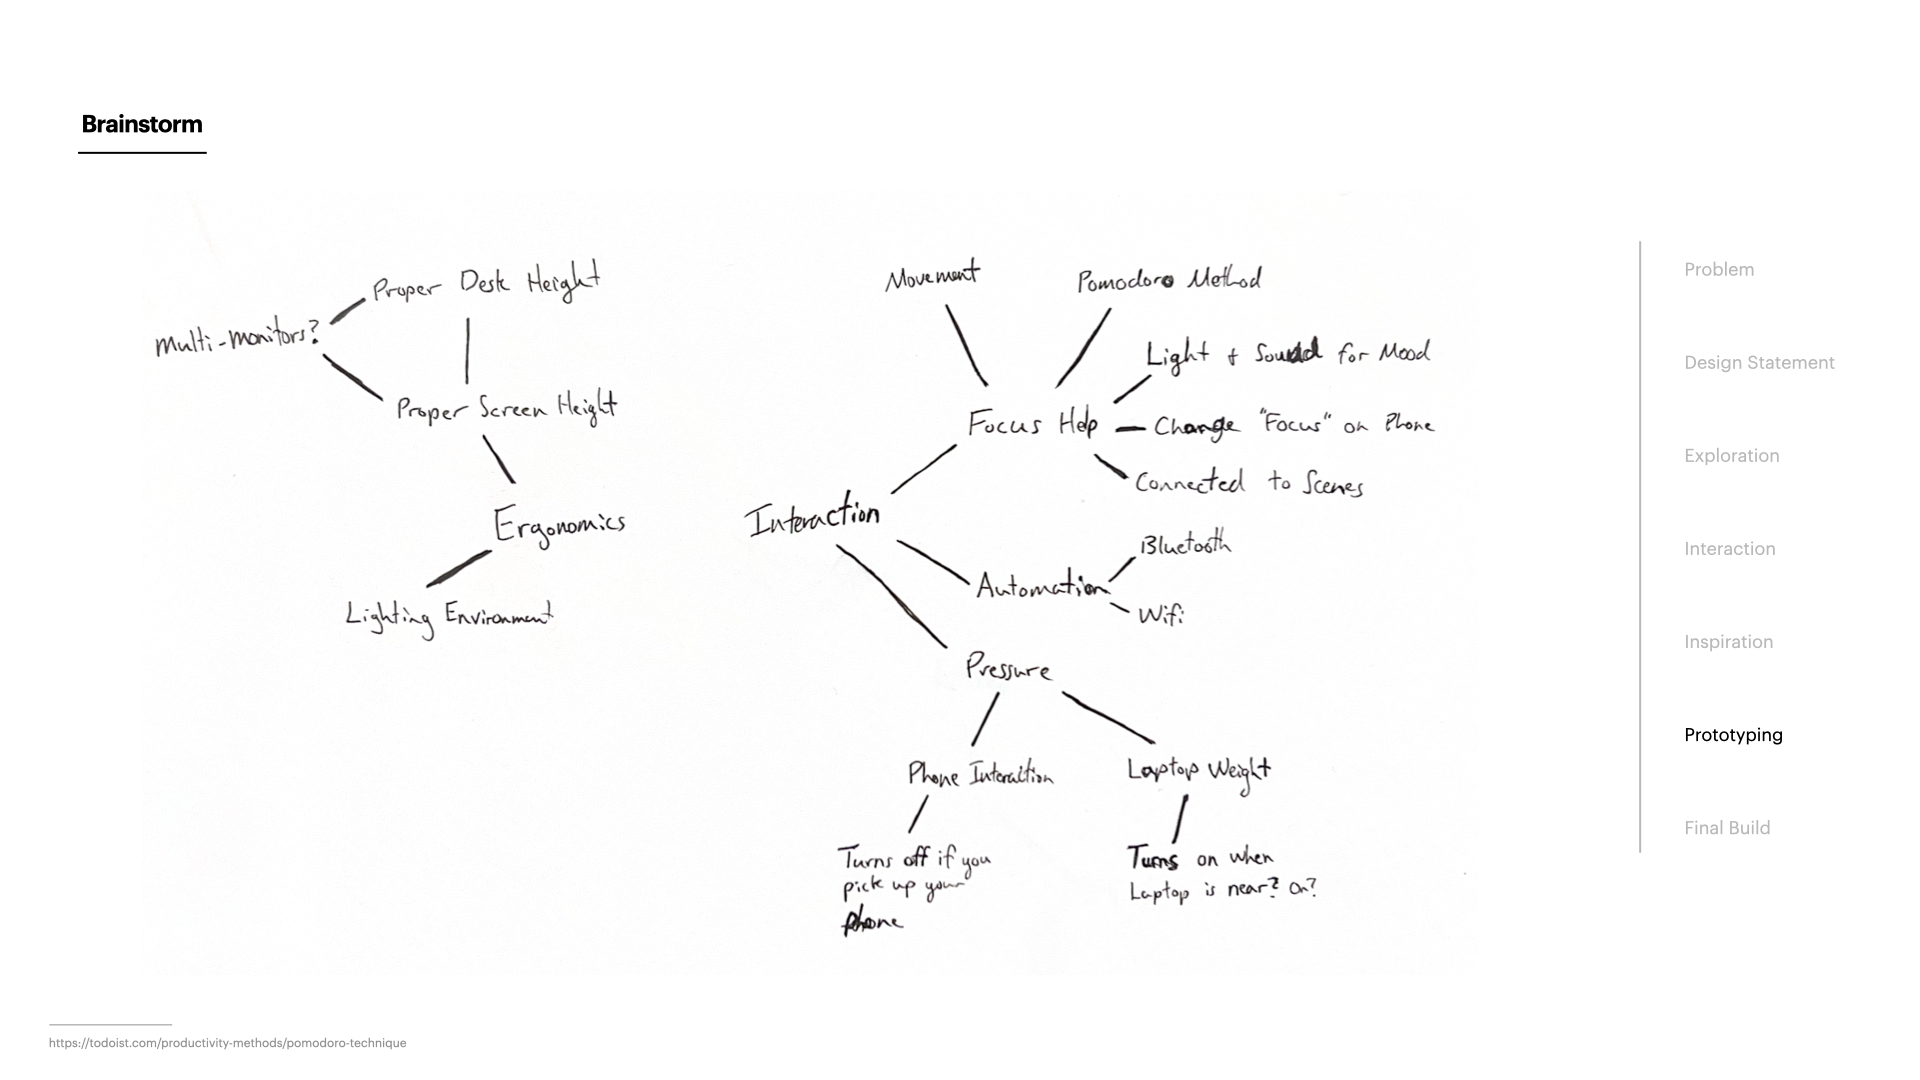 Brainstorm
Proper Desk Height
Multi-monitors?
Proper Screen Height
Ergonomics
Lighting Environment
Movement
Pomodoro Method
Light + Sound for Mood
Focus Help
Change "Focus" on Phone
Connected to Scenes
Interaction
Bluetooth
Automation
Wifi
Pressure
Phone Interaction
Laptop Weight
Turns off if you
pick up your
phone
Turns on when
Laptop is near? On?
Problem
Design Statement
Exploration
Interaction
Inspiration
Prototyping
Final Build
https://todoist.com/productivity-methods/pomodoro-technique